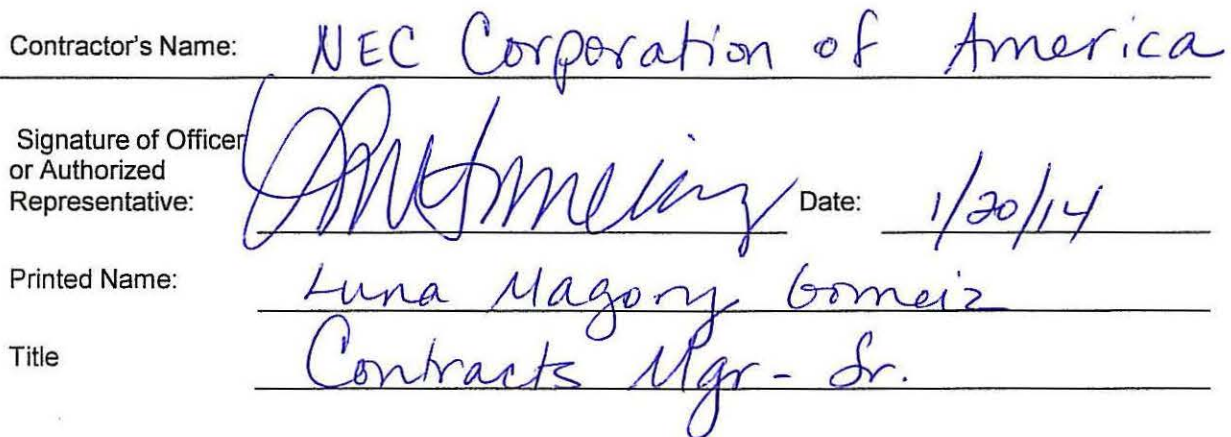 Contractor's Name: NEC Corporation of America
Signature of Officer
or Authorized
Representative: Date: 1/20/14
Printed Name: Luna Magony Gomeiz
Title Contracts Mgr - Sr.